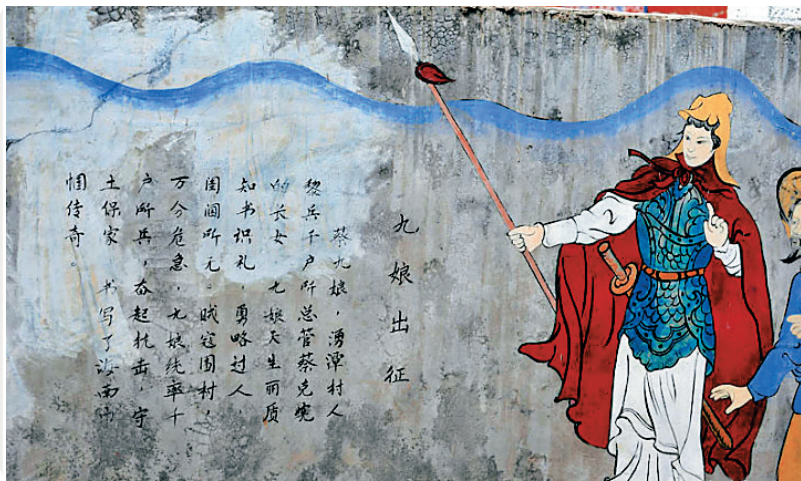 九娘出征
蔡九娘，湧潭村人
黎兵千户所总管蔡克宽
的长女 九娘天生丽质
知书识礼，勇略过人，
闺阃所无。贼寇围村，
万分危急，九娘统率千
户所兵，奋起抗击，守
土保家 书写了海南巾
帼传奇。